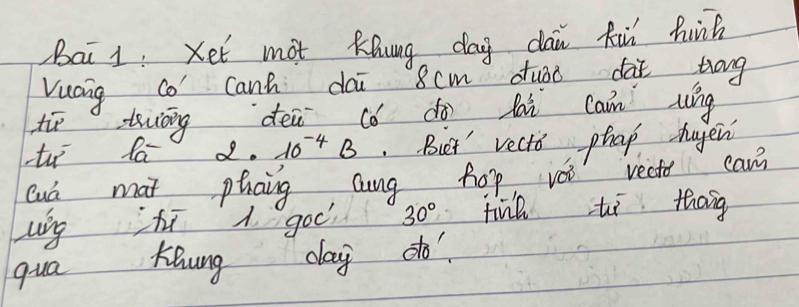 Bài 1: Xét một khung dây dẫn kín hình
vuông có cạnh dài 8cm được đặt trong
từ trường đều có độ lớn cảm ứng
từ là 2.10⁻⁴ B. Biết vectơ pháp tuyến
của mặt phẳng cung hợp với vectơ cảm
ứng từ 1 góc 30° tính từ thông
qua khung dây đó.